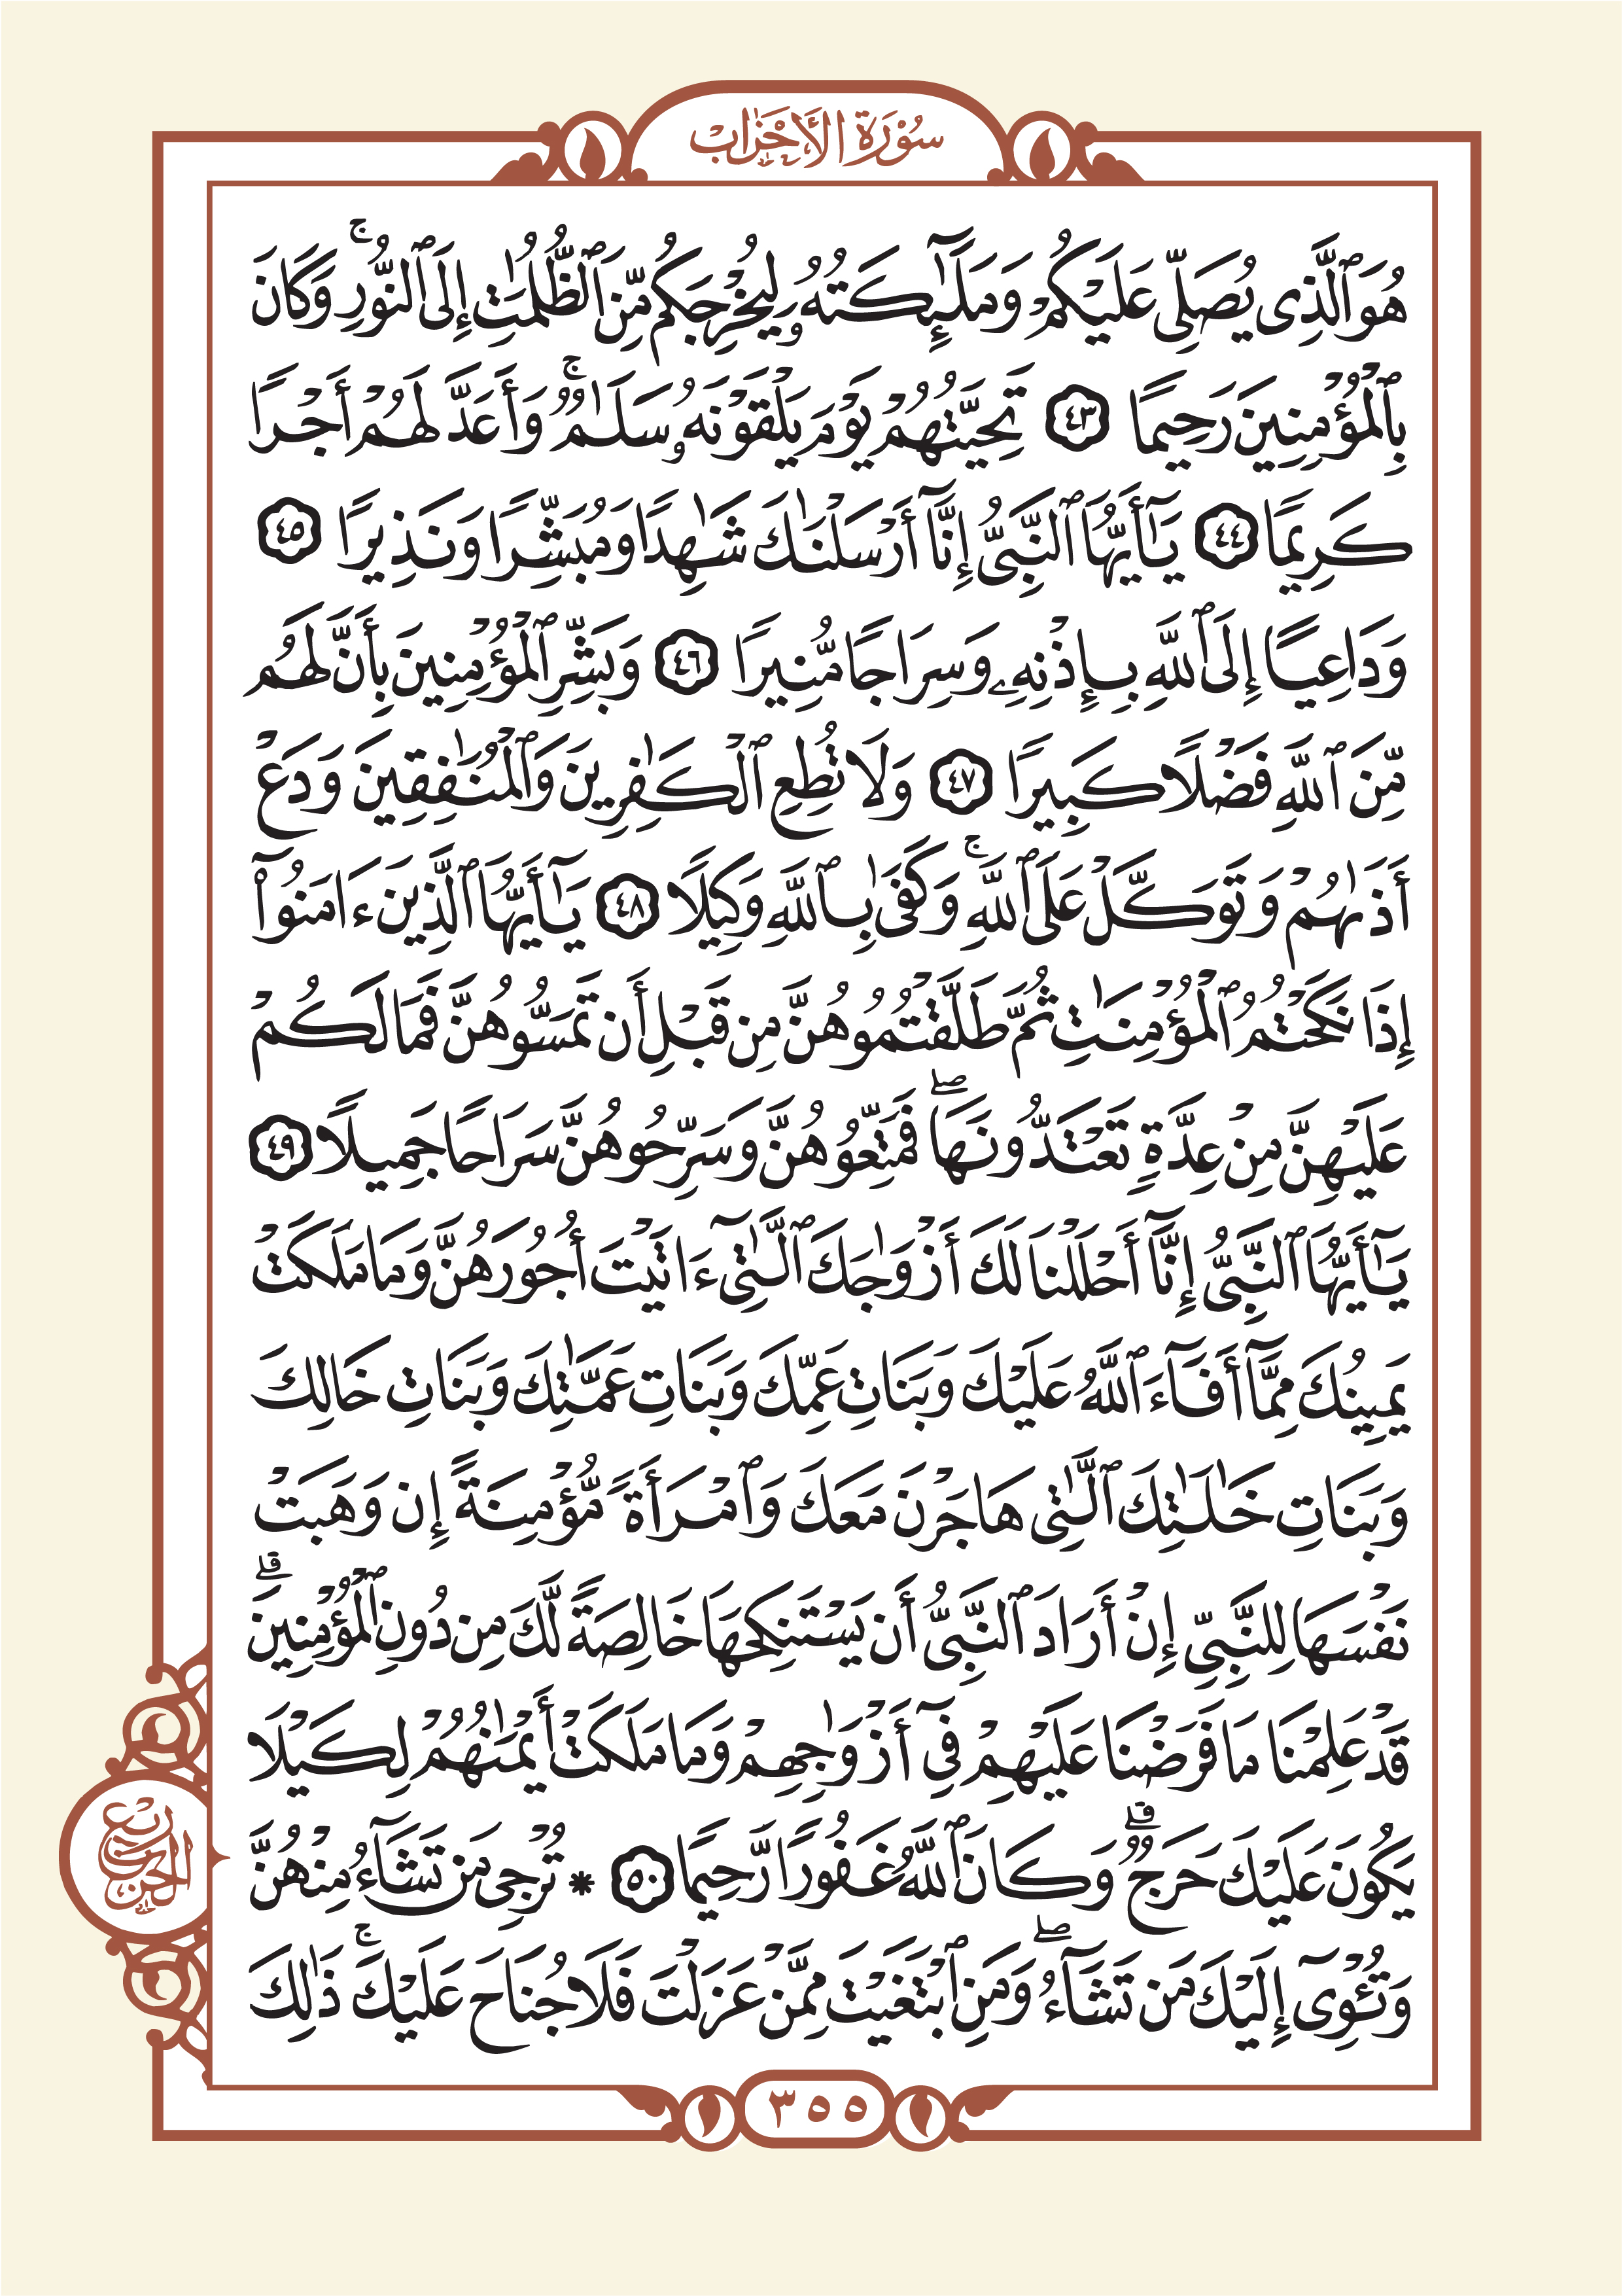 سُورَةُ الأَحْزَابِ
هُوَ ٱلَّذِى يُصَلِّى عَلَيْكُمْ وَمَلَٰٓئِكَتُهُۥ لِيُخْرِجَكُم مِّنَ ٱلظُّلُمَٰتِ إِلَى ٱلنُّورِ ۚ وَكَانَ
بِٱلْمُؤْمِنِينَ رَحِيمًا ٤٣ تَحِيَّتُهُمْ يَوْمَ يَلْقَوْنَهُۥ سَلَٰمٌ ۚ وَأَعَدَّ لَهُمْ أَجْرًا
كَرِيمًا ٤٤ يَٰٓأَيُّهَا ٱلنَّبِىُّ إِنَّآ أَرْسَلْنَٰكَ شَٰهِدًا وَمُبَشِّرًا وَنَذِيرًا ٤٥
وَدَاعِيًا إِلَى ٱللَّهِ بِإِذْنِهِۦ وَسِرَاجًا مُّنِيرًا ٤٦ وَبَشِّرِ ٱلْمُؤْمِنِينَ بِأَنَّ لَهُم
مِّنَ ٱللَّهِ فَضْلًا كَبِيرًا ٤٧ وَلَا تُطِعِ ٱلْكَٰفِرِينَ وَٱلْمُنَٰفِقِينَ وَدَعْ
أَذَىٰهُمْ وَتَوَكَّلْ عَلَى ٱللَّهِ ۚ وَكَفَىٰ بِٱللَّهِ وَكِيلًا ٤٨ يَٰٓأَيُّهَا ٱلَّذِينَ ءَامَنُوٓا۟
إِذَا نَكَحْتُمُ ٱلْمُؤْمِنَٰتِ ثُمَّ طَلَّقْتُمُوهُنَّ مِن قَبْلِ أَن تَمَسُّوهُنَّ فَمَا لَكُمْ
عَلَيْهِنَّ مِنْ عِدَّةٍ تَعْتَدُّونَهَا ۖ فَمَتِّعُوهُنَّ وَسَرِّحُوهُنَّ سَرَاحًا جَمِيلًا ٤٩
يَٰٓأَيُّهَا ٱلنَّبِىُّ إِنَّآ أَحْلَلْنَا لَكَ أَزْوَٰجَكَ ٱلَّٰتِىٓ ءَاتَيْتَ أُجُورَهُنَّ وَمَا مَلَكَتْ
يَمِينُكَ مِمَّآ أَفَآءَ ٱللَّهُ عَلَيْكَ وَبَنَاتِ عَمِّكَ وَبَنَاتِ عَمَّٰتِكَ وَبَنَاتِ خَالِكَ
وَبَنَاتِ خَٰلَٰتِكَ ٱلَّٰتِى هَاجَرْنَ مَعَكَ وَٱمْرَأَةً مُّؤْمِنَةً إِن وَهَبَتْ
نَفْسَهَا لِلنَّبِىِّ إِنْ أَرَادَ ٱلنَّبِىُّ أَن يَسْتَنكِحَهَا خَالِصَةً لَّكَ مِن دُونِ ٱلْمُؤْمِنِينَ ۗ
قَدْ عَلِمْنَا مَا فَرَضْنَا عَلَيْهِمْ فِىٓ أَزْوَٰجِهِمْ وَمَا مَلَكَتْ أَيْمَٰنُهُمْ لِكَيْلَا
يَكُونَ عَلَيْكَ حَرَجٌ ۗ وَكَانَ ٱللَّهُ غَفُورًا رَّحِيمًا ٥٠ * تُرْجِى مَن تَشَآءُ مِنْهُنَّ
وَتُـْٔوِىٓ إِلَيْكَ مَن تَشَآءُ ۖ وَمَنِ ٱبْتَغَيْتَ مِمَّنْ عَزَلْتَ فَلَا جُنَاحَ عَلَيْكَ ۚ ذَٰلِكَ
٣٥٥